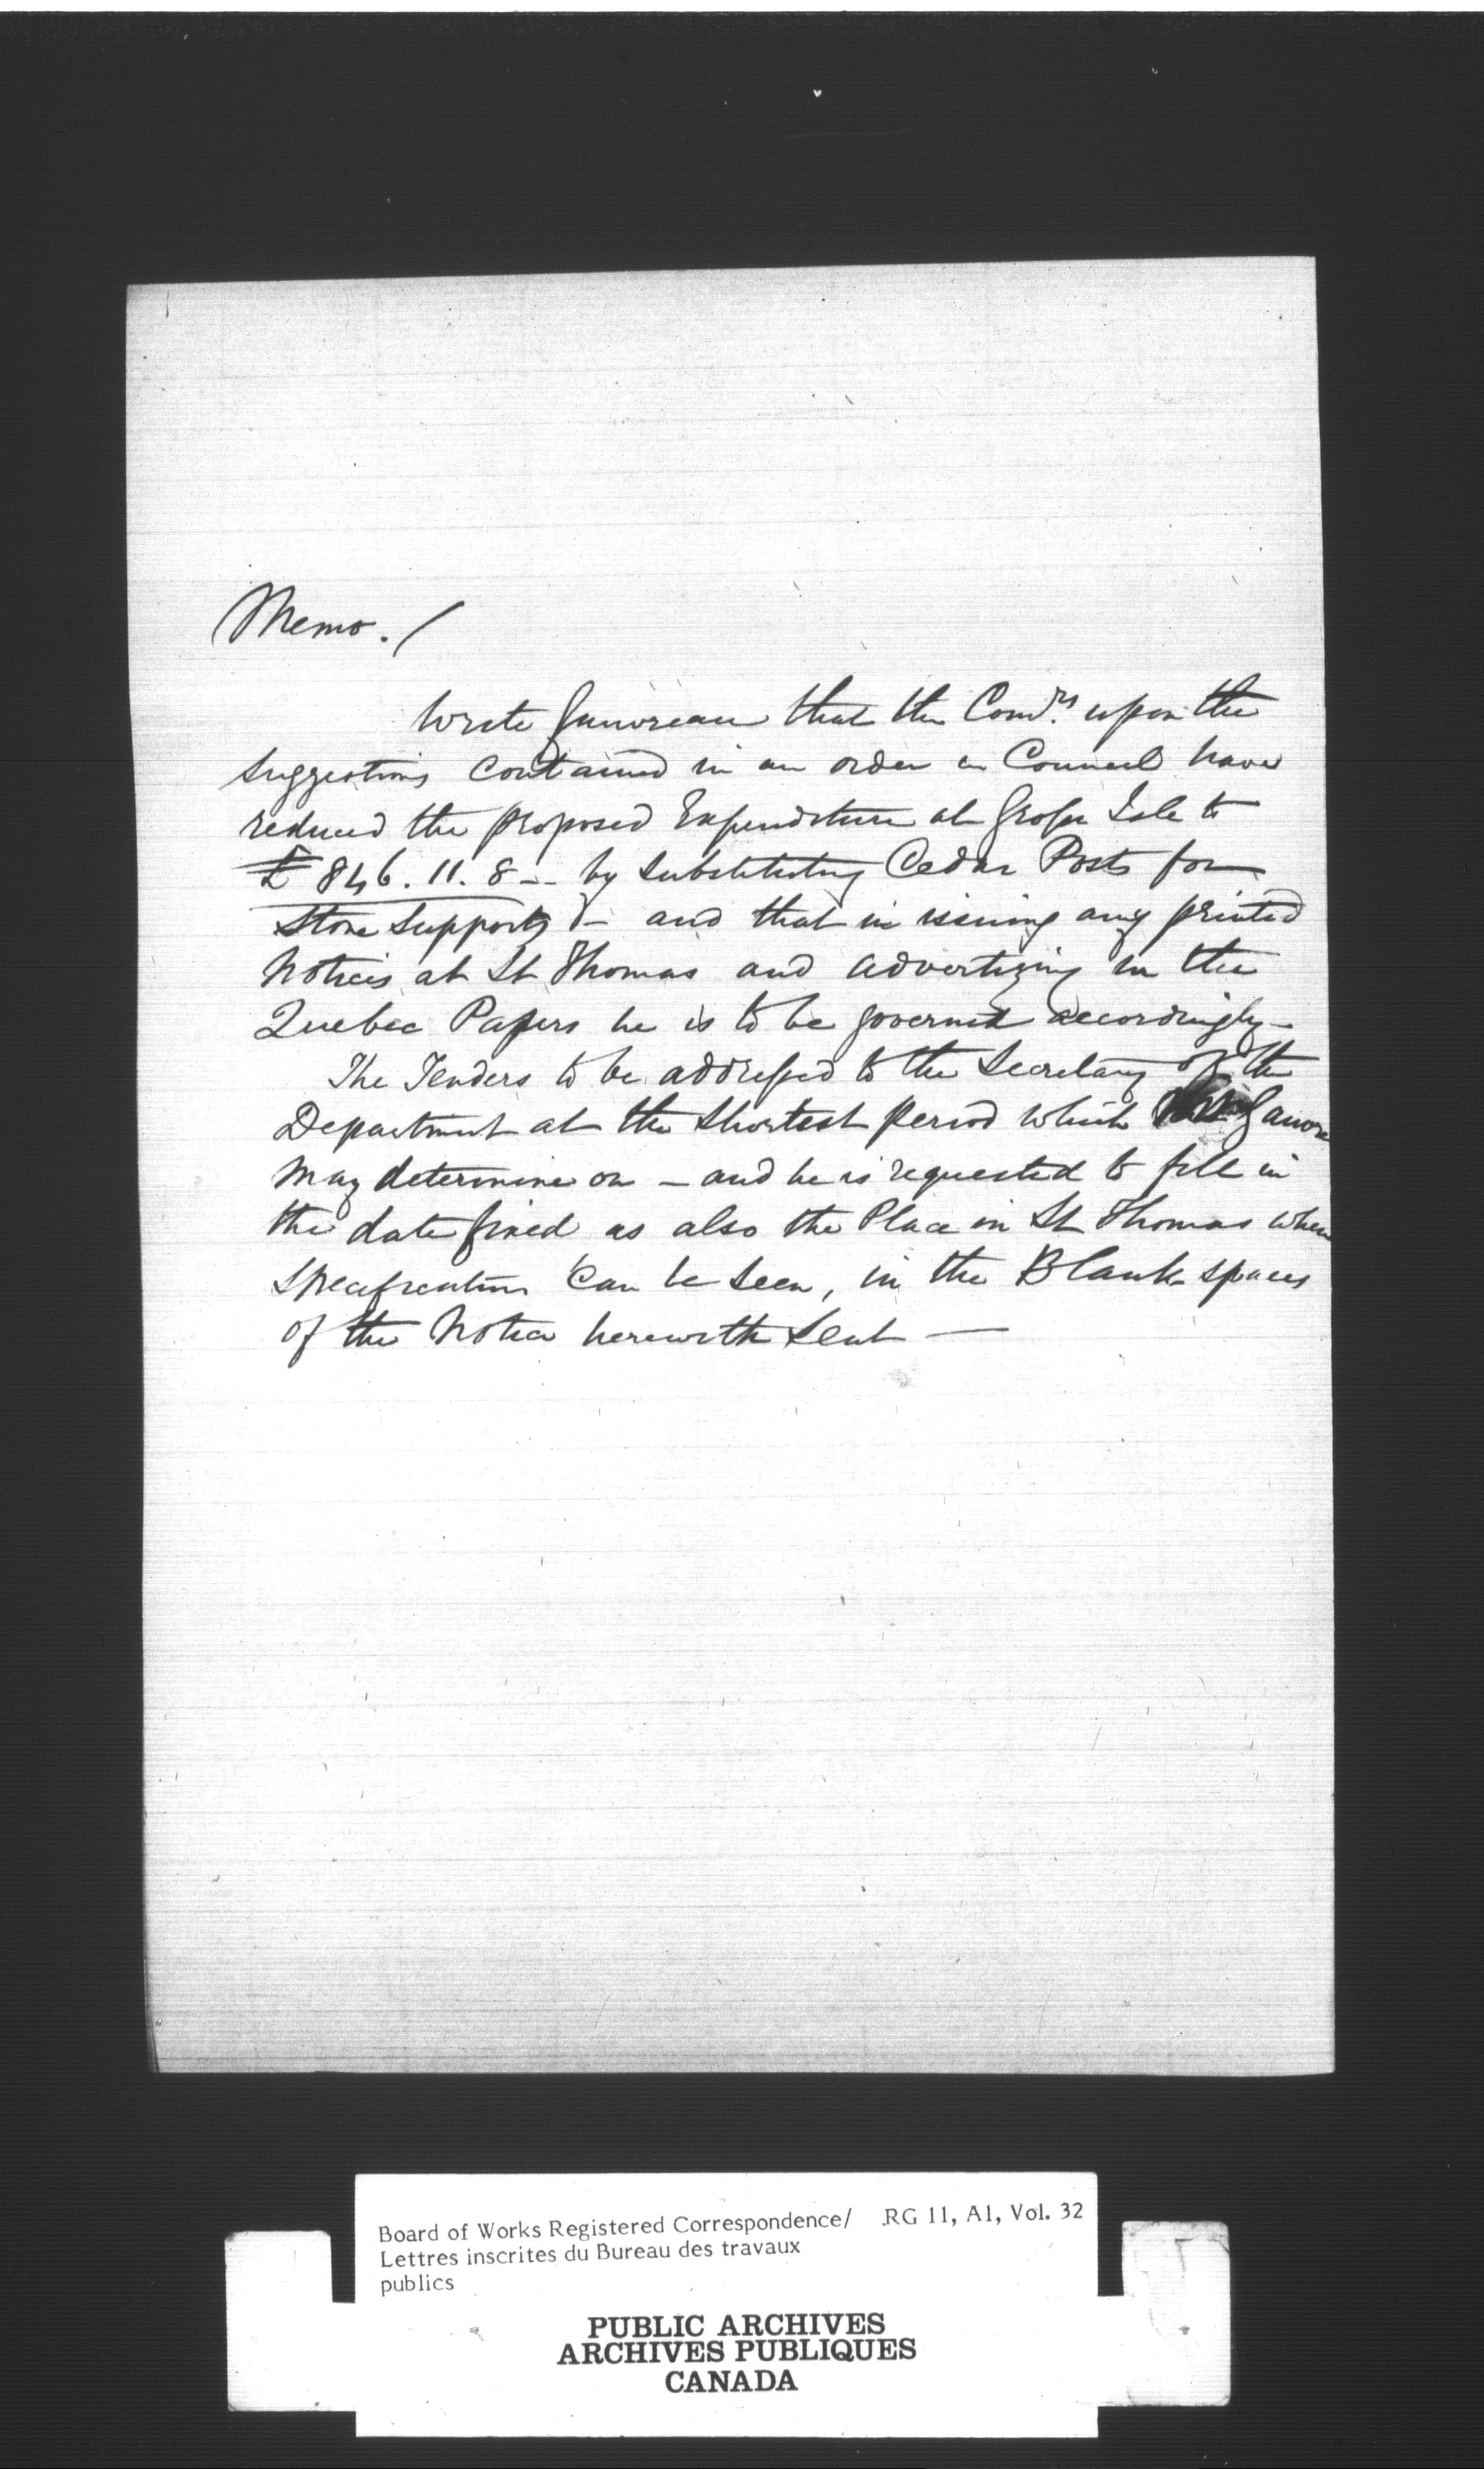 Memo. /
Write Gauvreau that the Com.rs upon the
suggestions contained in an order in Council have
reduced the proposed Expenditure at Grosse Isle to
£846. 11. 8 -- by substituting Cedar Posts for
Stone supports - and that in issuing any printed
Notices at St Thomas and advertizing in the
Quebec Papers he is to be governed accordingly -
The Tenders to be addressed to the Secretary of the
Department at the shortest period which
may determine on - and he is requested to fill in
the date fixed as also the Place in St Thomas where
specification can be seen, in the Blank spaces
of the Notice herewith sent —
Board of Works Registered Correspondence/ RG 11, A1, Vol. 32
Lettres inscrites du Bureau des travaux
publics
PUBLIC ARCHIVES
ARCHIVES PUBLIQUES
CANADA